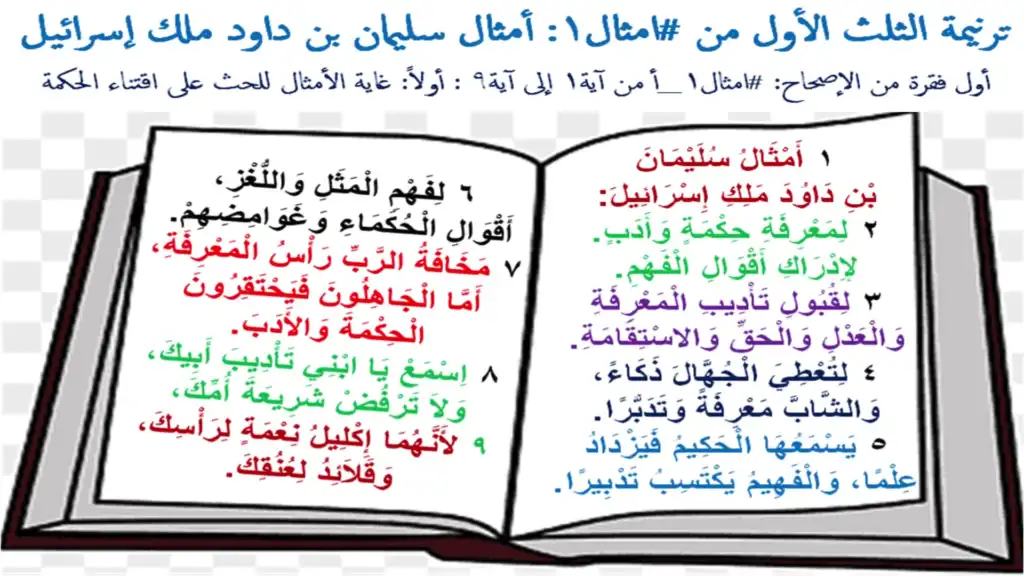 ترنيمة الثلث الأول من #امثال١: أمثال سليمان بن داود ملك إسرائيل
أول فقرة من الإصحاح: #امثال١_أ من آية١ إلى آية٩ : أولاً: غاية الأمثال للحث على اقتناء الحكمة
١ أَمْثَالُ سُلَيْمَانَ
بْنِ دَاوُدَ مَلِكِ إِسْرَائِيلَ:
٢ لِمَعْرِفَةِ حِكْمَةٍ وَأَدَبٍ.
لإِدْرَاكِ أَقْوَالِ الْفَهْمِ.
٣ لِقُبُولِ تَأْدِيبِ الْمَعْرِفَةِ
وَالْعَدْلِ وَالْحَقِّ وَالاسْتِقَامَةِ.
٤ لِتُعْطِيَ الْجُهَّالَ ذَكَاءً،
وَالشَّابَّ مَعْرِفَةً وَتَدَبُّرًا.
٥ يَسْمَعُهَا الْحَكِيمُ فَيَزْدَادُ
عِلْمًا، وَالْفَهِيمُ يَكْتَسِبُ تَدْبِيرًا.
٦ لِفَهْمِ الْمَثَلِ وَاللُّغْزِ،
أَقْوَالِ الْحُكَمَاءِ وَغَوَامِضِهِمْ.
٧ مَخَافَةُ الرَّبِّ رَأْسُ الْمَعْرِفَةِ،
أَمَّا الْجَاهِلُونَ فَيَحْتَقِرُونَ
الْحِكْمَةَ وَالأَدَبَ.
٨ اِسْمَعْ يَا ابْنِي تَأْدِيبَ أَبِيكَ،
وَلاَ تَرْفُضْ شَرِيعَةَ أُمِّكَ،
٩ لأَنَّهُمَا إِكْلِيلُ نِعْمَةٍ لِرَأْسِكَ،
وَقَلاَئِدُ لِعُنُقِكَ.